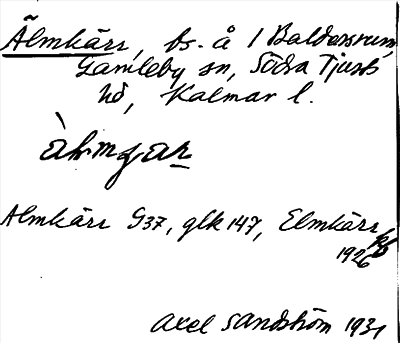 Älmkärr, bs. å 1 Baldersrum,
Gamleby sn, Södra Tjusts
hd, Kalmar l.
Älmkärr G37, glk 147, Elmkärr
1926
Axel Sandström 1931